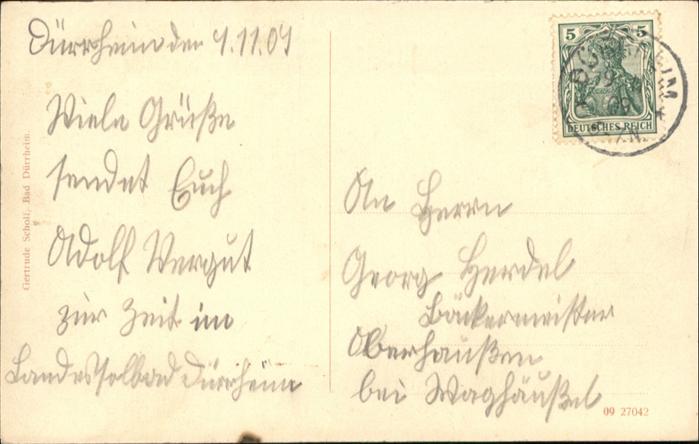 Dürrheim den 9.11.09
Viele Grüße
sendet Euch
Adolf Vergut
zur Zeit im
Landessolbad Dürrheim
Gertrude Scholl, Bad Dürrheim.
5 5
DEUTSCHES REICH
An Herrn
Georg Herdel
Bäckermeister
Oberhaußen
bei Waghäußel
09 27042